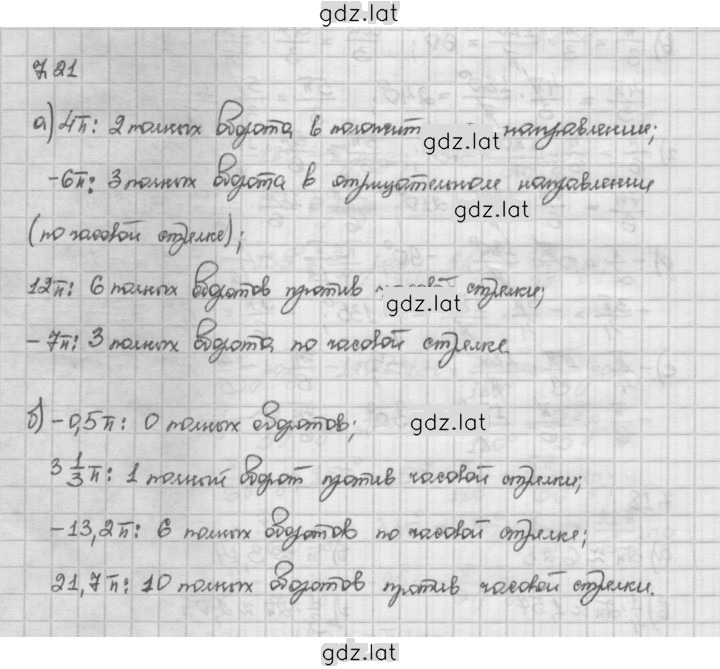 gdz.lat
7.21
а) 4π: 2 полных оборота в положит gdz.lat направлении;
-6π: 3 полных оборота в отрицательном направлении
gdz.lat
(по часовой стрелке);
12π: 6 полных оборотов против часовой стрелки;
gdz.lat
-7π: 3 полных оборота по часовой стрелке.
б) -0,5π: 0 полных оборотов;
gdz.lat
3 1/3 π: 1 полный оборот против часовой стрелки;
-13,2π: 6 полных оборотов по часовой стрелке;
21,7π: 10 полных оборотов против часовой стрелки.
gdz.lat